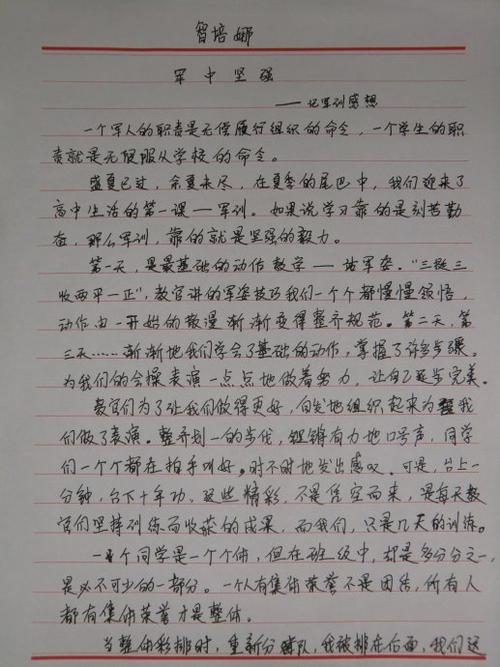 智培娜
军中坚强
——记军训感想
一个军人的职责是无偿履行组织的命令，一个学生的职
责就是无偿服从学校的命令。
盛夏已过，余夏未尽，在夏季的尾巴中，我们迎来了
高中生活的第一课——军训。如果说学习靠的是刻苦勤
奋，那么军训，靠的就是坚强的毅力。
第一天，是最基础的动作教学——站军姿。“三挺三
收两平一正”，教官讲的军姿技巧我们一个个都慢慢领悟，
动作由一开始的散漫渐渐变得整齐规范。第二天，第
三天……渐渐地我们学会了基础的动作，掌握了许多步骤。
为我们的会操表演一点点地做着努力，让自己逐步完美。
教官们为了让我们做得更好，自发地组织起来为我
们做了表演。整齐划一的步伐，铿锵有力地口号声，同学
们一个个都在拍手叫好。时不时地发出感叹。可是，台上一
分钟，台下十年功。这些精彩，不是凭空而来，是每天教
官们坚持训练而收获的成果，而我们，只是几天的训练。
一个同学是一个个体，但在班级中，却是多分分之一，
是必不可少的一部分。一个人有集体荣誉不是团结，所有人
都有集体荣誉才是整体。
当整体彩排时，重新分排队，我被排在后面，我们这